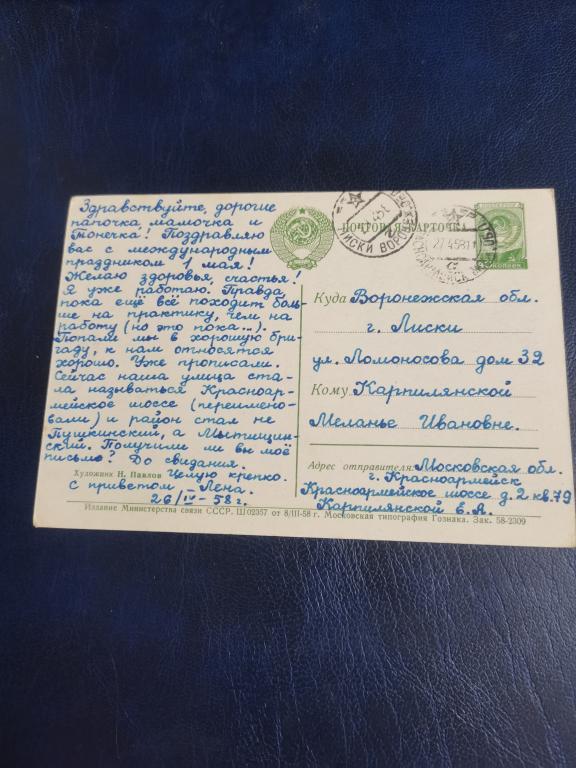 Здравствуйте, дорогие
папочка, мамочка и
Тонечка! Поздравляю
вас с международным
праздником 1 мая!
Желаю здоровья, счастья!
Я уже работаю. Правда,
пока ещё всё походит боль-
ше на практику, чем на
работу (но это пока...).
Попали мы в хорошую бри-
гаду, к нам относятся
хорошо. Уже прописали.
Сейчас наша улица ста-
ла называться Красноар-
мейское шоссе (переимено-
вали) и район стал не
Пушкинский, а Мытищин-
ский. Получили ли вы моё
письмо? До свидания.
Художник Н. Павлов Целую крепко.
С приветом - Лена.
26/IV-58 г.
ПОЧТОВАЯ КАРТОЧКА
Куда Воронежская обл.
г. Лиски
ул. Ломоносова дом 32
Кому Карпилянской
Меланье Ивановне.
Адрес отправителя: Московская обл.
г. Красноармейск
Красноармейское шоссе д. 2 кв. 79
Карпилянской Е.А.
Издание Министерства связи СССР. Ш 02357 от 8/III-58 г. Московская типография Гознака. Зак. 58-2309